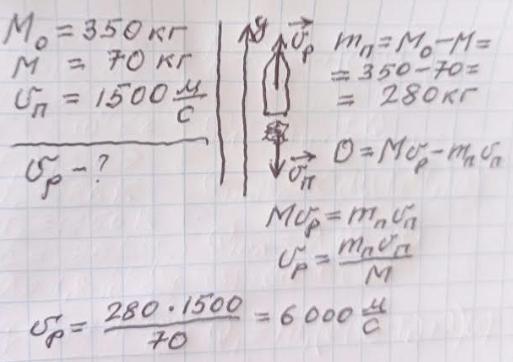 M₀ = 350 кг
M = 70 кг
υₙ = 1500 м/с
υₚ - ?
y
υₚ
υₙ
mₙ = M₀ - M =
= 350 - 70 =
= 280 кг
0 = Mυₚ - mₙυₙ
Mυₚ = mₙυₙ
υₚ = mₙυₙ / M
υₚ = 280 · 1500 / 70 = 6000 м/с